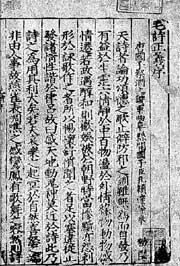 毛詩正義序
夫詩者論功頌德之歌止僻防邪之訓雖無為而自發乃
有益於生靈六情靜於中百物盪於外情緣物動物感
情遷若政遇醇和則歡娛被於朝野時當慘黷亦怨刺
形於詠歌作之者所以暢懷舒憤聞之者足以塞違從正
發諸情性諧於律呂故曰感天地動鬼神莫近於詩此乃
詩之為用其利大矣若夫哀樂之起冥於自然喜怒之端
非由人事故燕雀表啁噍之感鸞鳳有歌舞之容然則詩